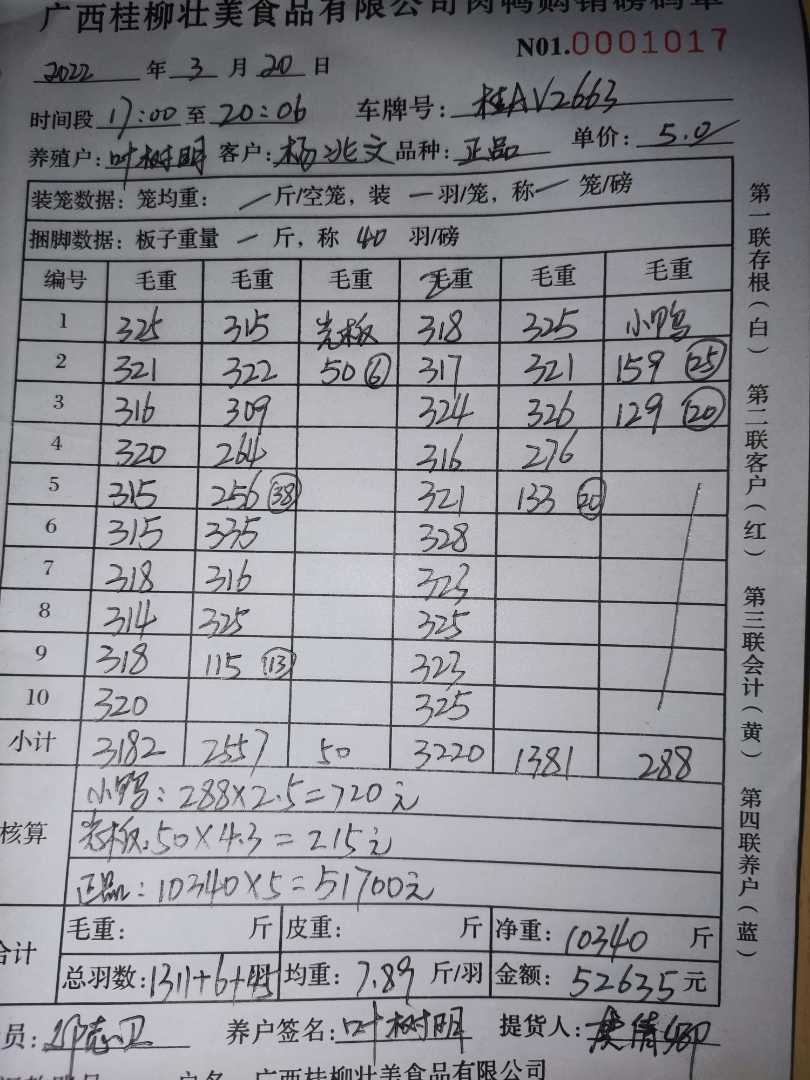 广西桂柳壮美食品有限公司肉鸭购销磅码单
N01.0001017
2022 年 3 月 20 日
时间段 17:00 至 20:06 车牌号: 桂AV2663
养殖户: 叶树明 客户: 杨兆文 品种: 正品 单价: 5.0
装笼数据: 笼均重: 一 斤/空笼, 装 一 羽/笼, 称 一 笼/磅
捆脚数据: 板子重量 一 斤, 称 40 羽/磅
编号 毛重 毛重 毛重 毛重 毛重 毛重
1 325 315 光板 318 325 小鸭
2 321 322 50 ⑥ 317 321 159 (25)
3 316 309 324 326 129 (20)
4 320 264 316 276
5 315 256 (38) 321 133 (20)
6 315 335 328
7 318 316 323
8 314 325 325
9 318 115 (13) 323
10 320 325
小计 3182 2557 50 3220 1381 288
核算
小鸭: 288×2.5=720元
光板: 50×4.3=215元
正品: 10340×5=51700元
合计
毛重: 斤 皮重: 斤 净重: 10340 斤
总羽数: 1311+6+45 羽 均重: 7.89 斤/羽 金额: 52635 元
员: 邓志卫 养户签名: 叶树明 提货人:
户名 广西桂柳壮美食品有限公司
第一联存根(白) 第二联客户(红) 第三联会计(黄) 第四联养户(蓝)